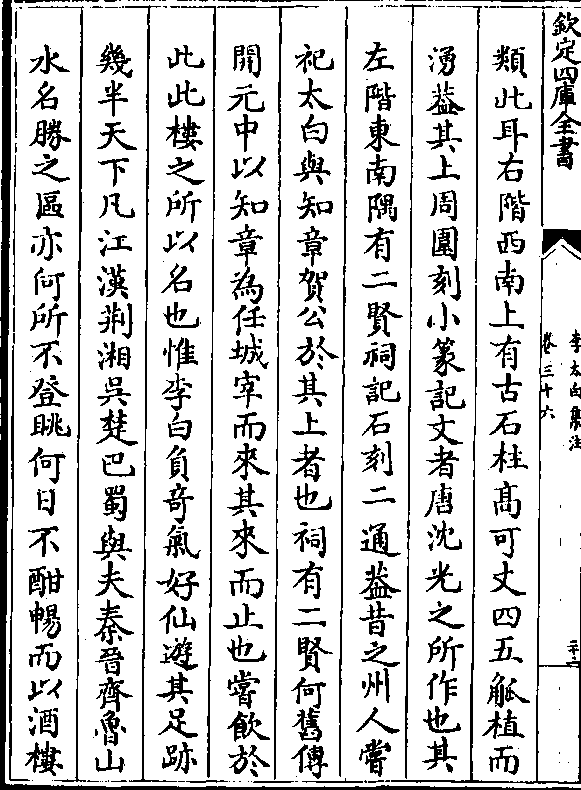 欽定四庫全書
李太白集注
卷三十六
類此耳右階西南上有古石柱髙可丈四五觚植而
湧葢其上周圍刻小篆記文者唐沈光之所作也其
左階東南隅有二賢祠記石刻二通葢昔之州人嘗
祀太白與知章賀公於其上者也祠有二賢何舊傳
開元中以知章為任城宰而來其來而止也嘗飲於
此此樓之所以名也惟李白負奇氣好仙遊其足跡
幾半天下凡江漢荆湘吳楚巴蜀與夫秦晉齊魯山
水名勝之區亦何所不登眺何日不酣暢而以酒樓